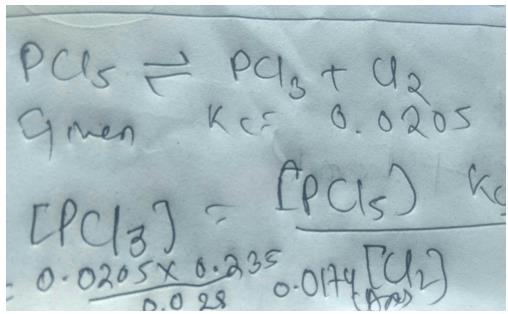 PCl5 ⇌ PCl3 + Cl2
Given Kc= 0.0205
[PCl3] = [PCl5] Kc
[Cl2]
= 0.0205 × 0.235
0.028
0.0174 (Ans)